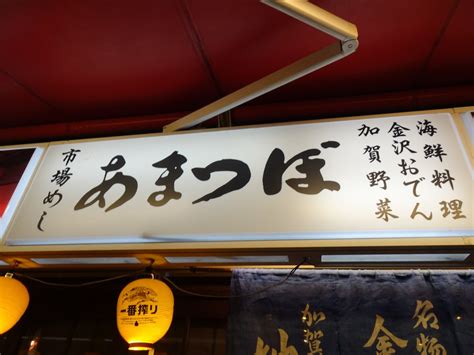 市場めし
あまつぼ
海鮮料理
金沢おでん
加賀野菜
一番搾り
名物
金
加賀